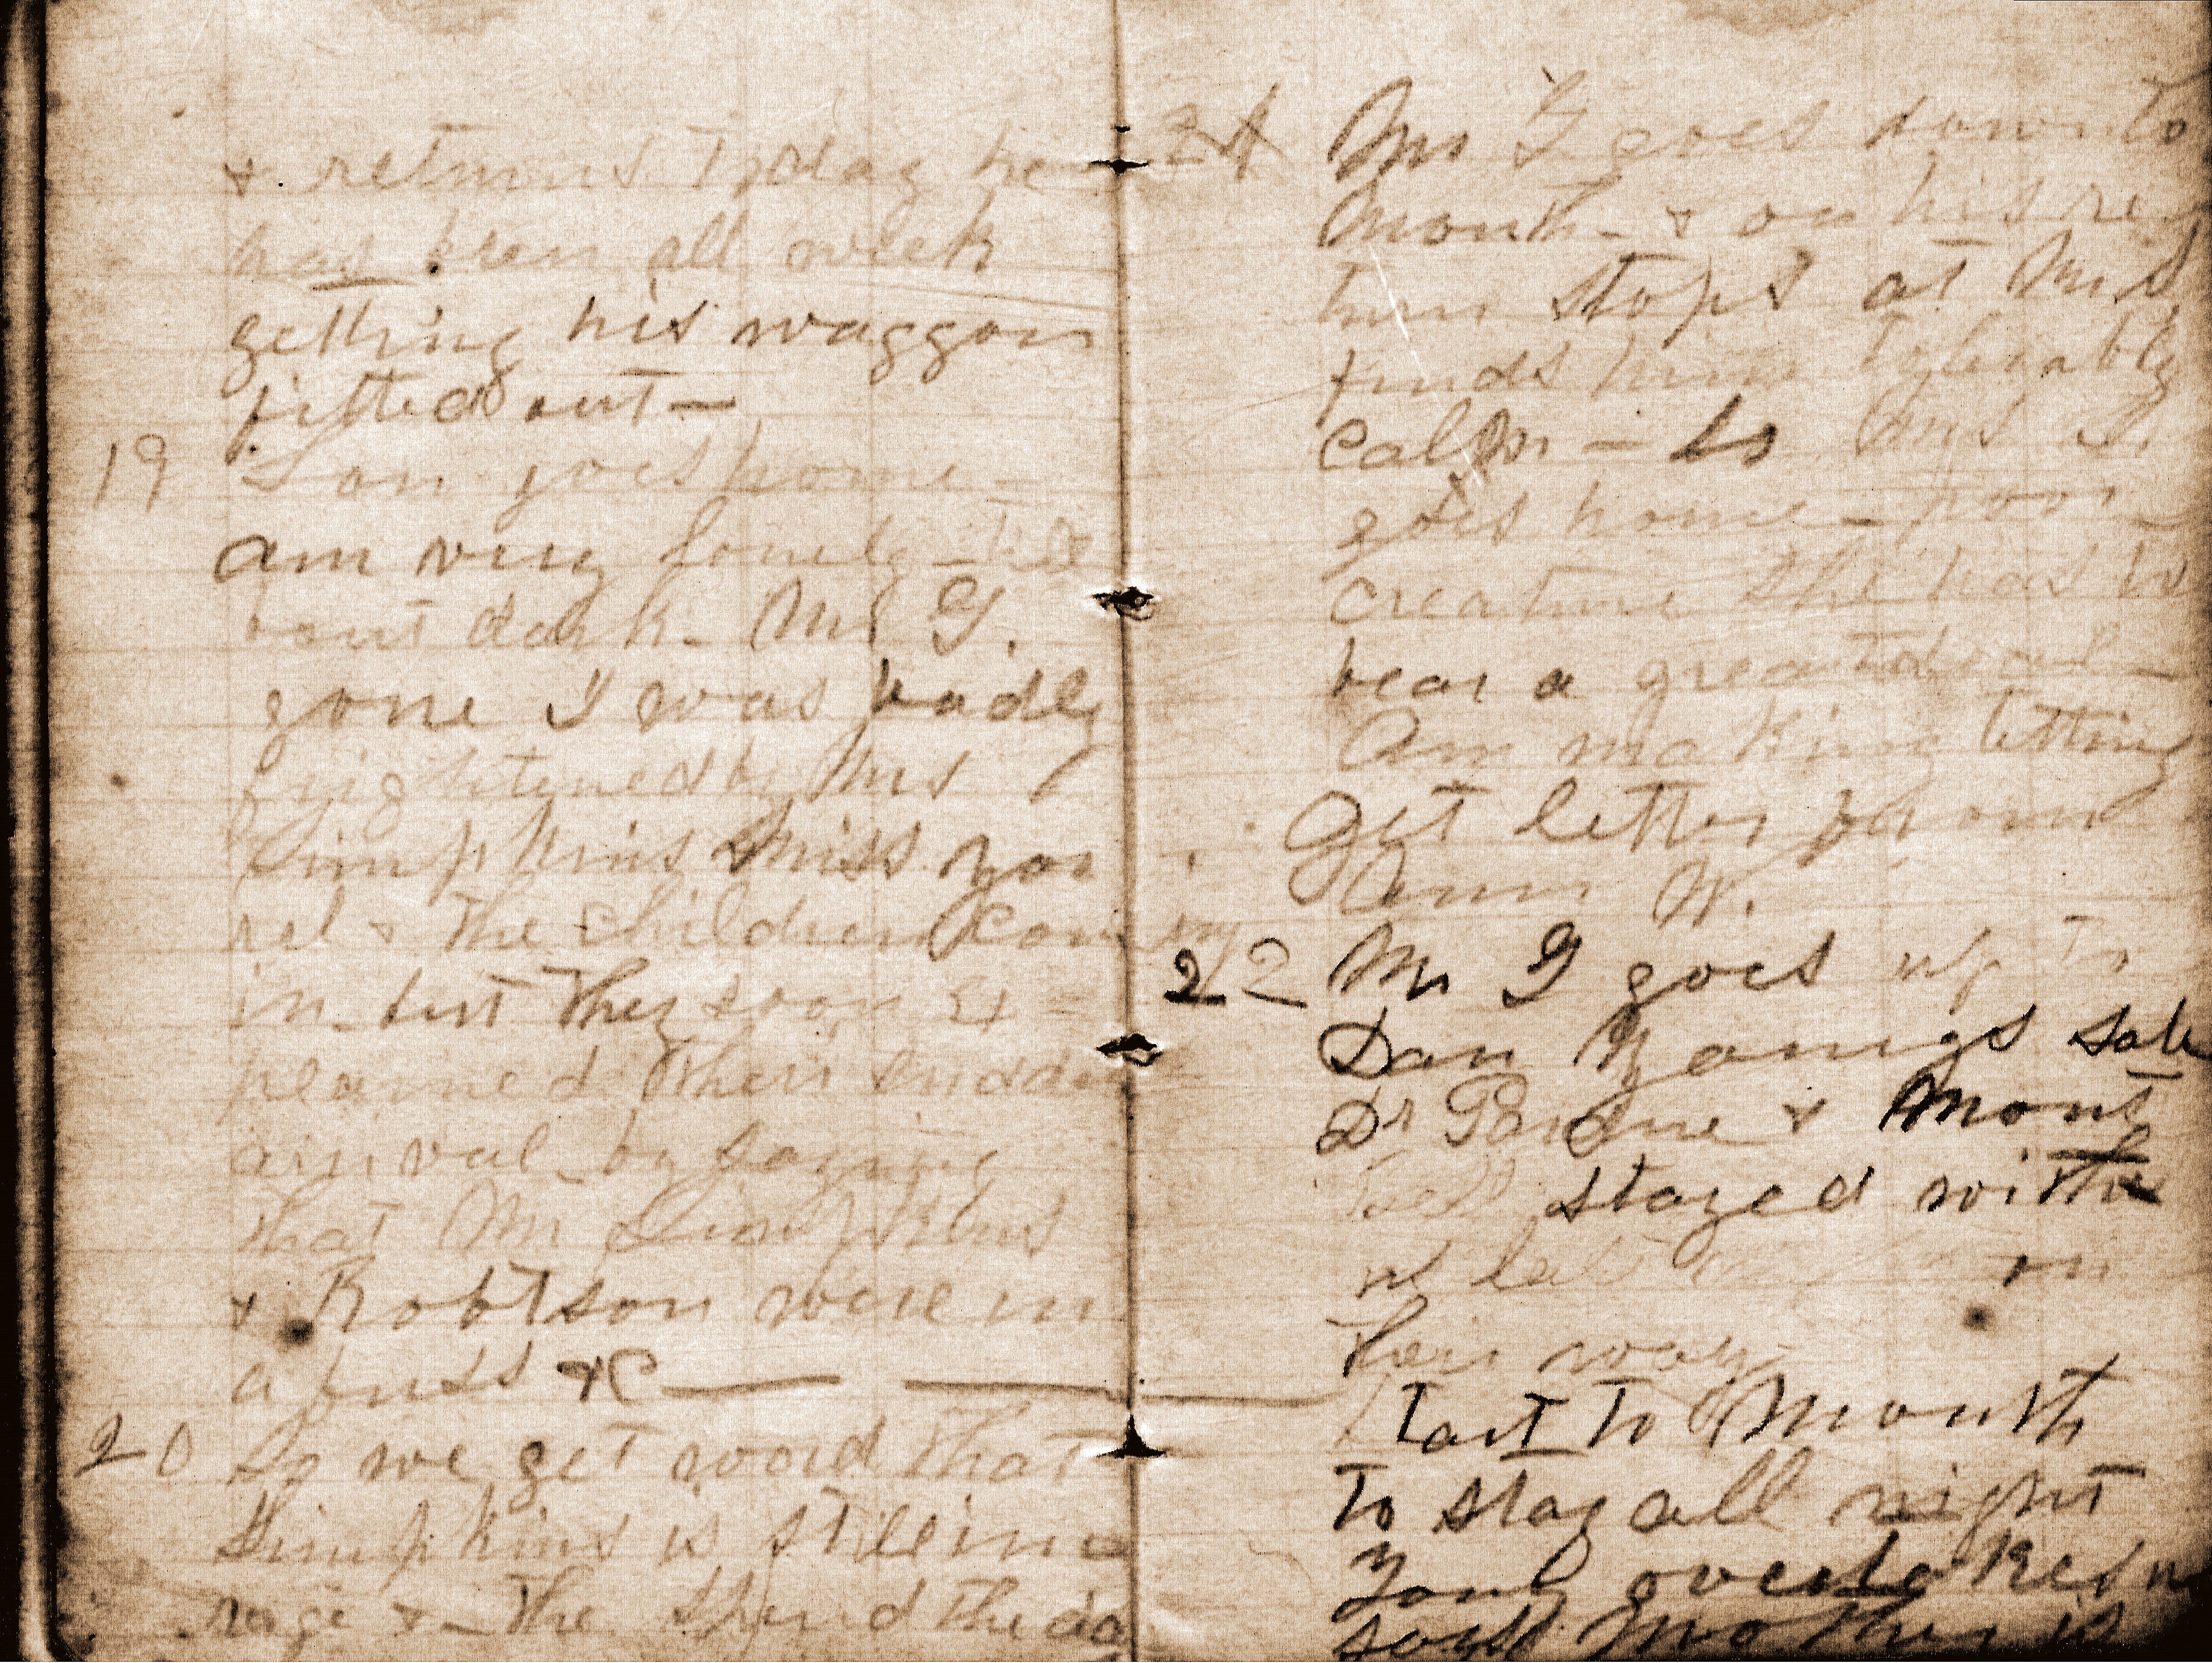 & returns Today he
has been all week
getting his waggon
fitted out —
19 Lon goes home —
am very lonely
bout dark - Mr G.
gone I was badly
frightened by Mrs
Simpkins Miss you
rel & the children coming
in - but they soon ex =
plained their sudden
arrival by saying
that Mr Simpkins
& Robtson were in
a fuss &c —
20 So we get word that
Simpkins is still in a
rage & - the spend the da
21 Mr G goes down to
Mouth - & on his re
turn stops at Mr S
finds him tolerably
calm - so Mrs S.
goes home - poor
creature she has to
bear a great deal -
Am making tatting
Get letter from
Ann W.
22 Mr G goes up to
Dan Youngs sale
Dr Pardue & Mont
stayed with
on
their way
Start to Mouth
To stay all night
overtakes us
says Mother is